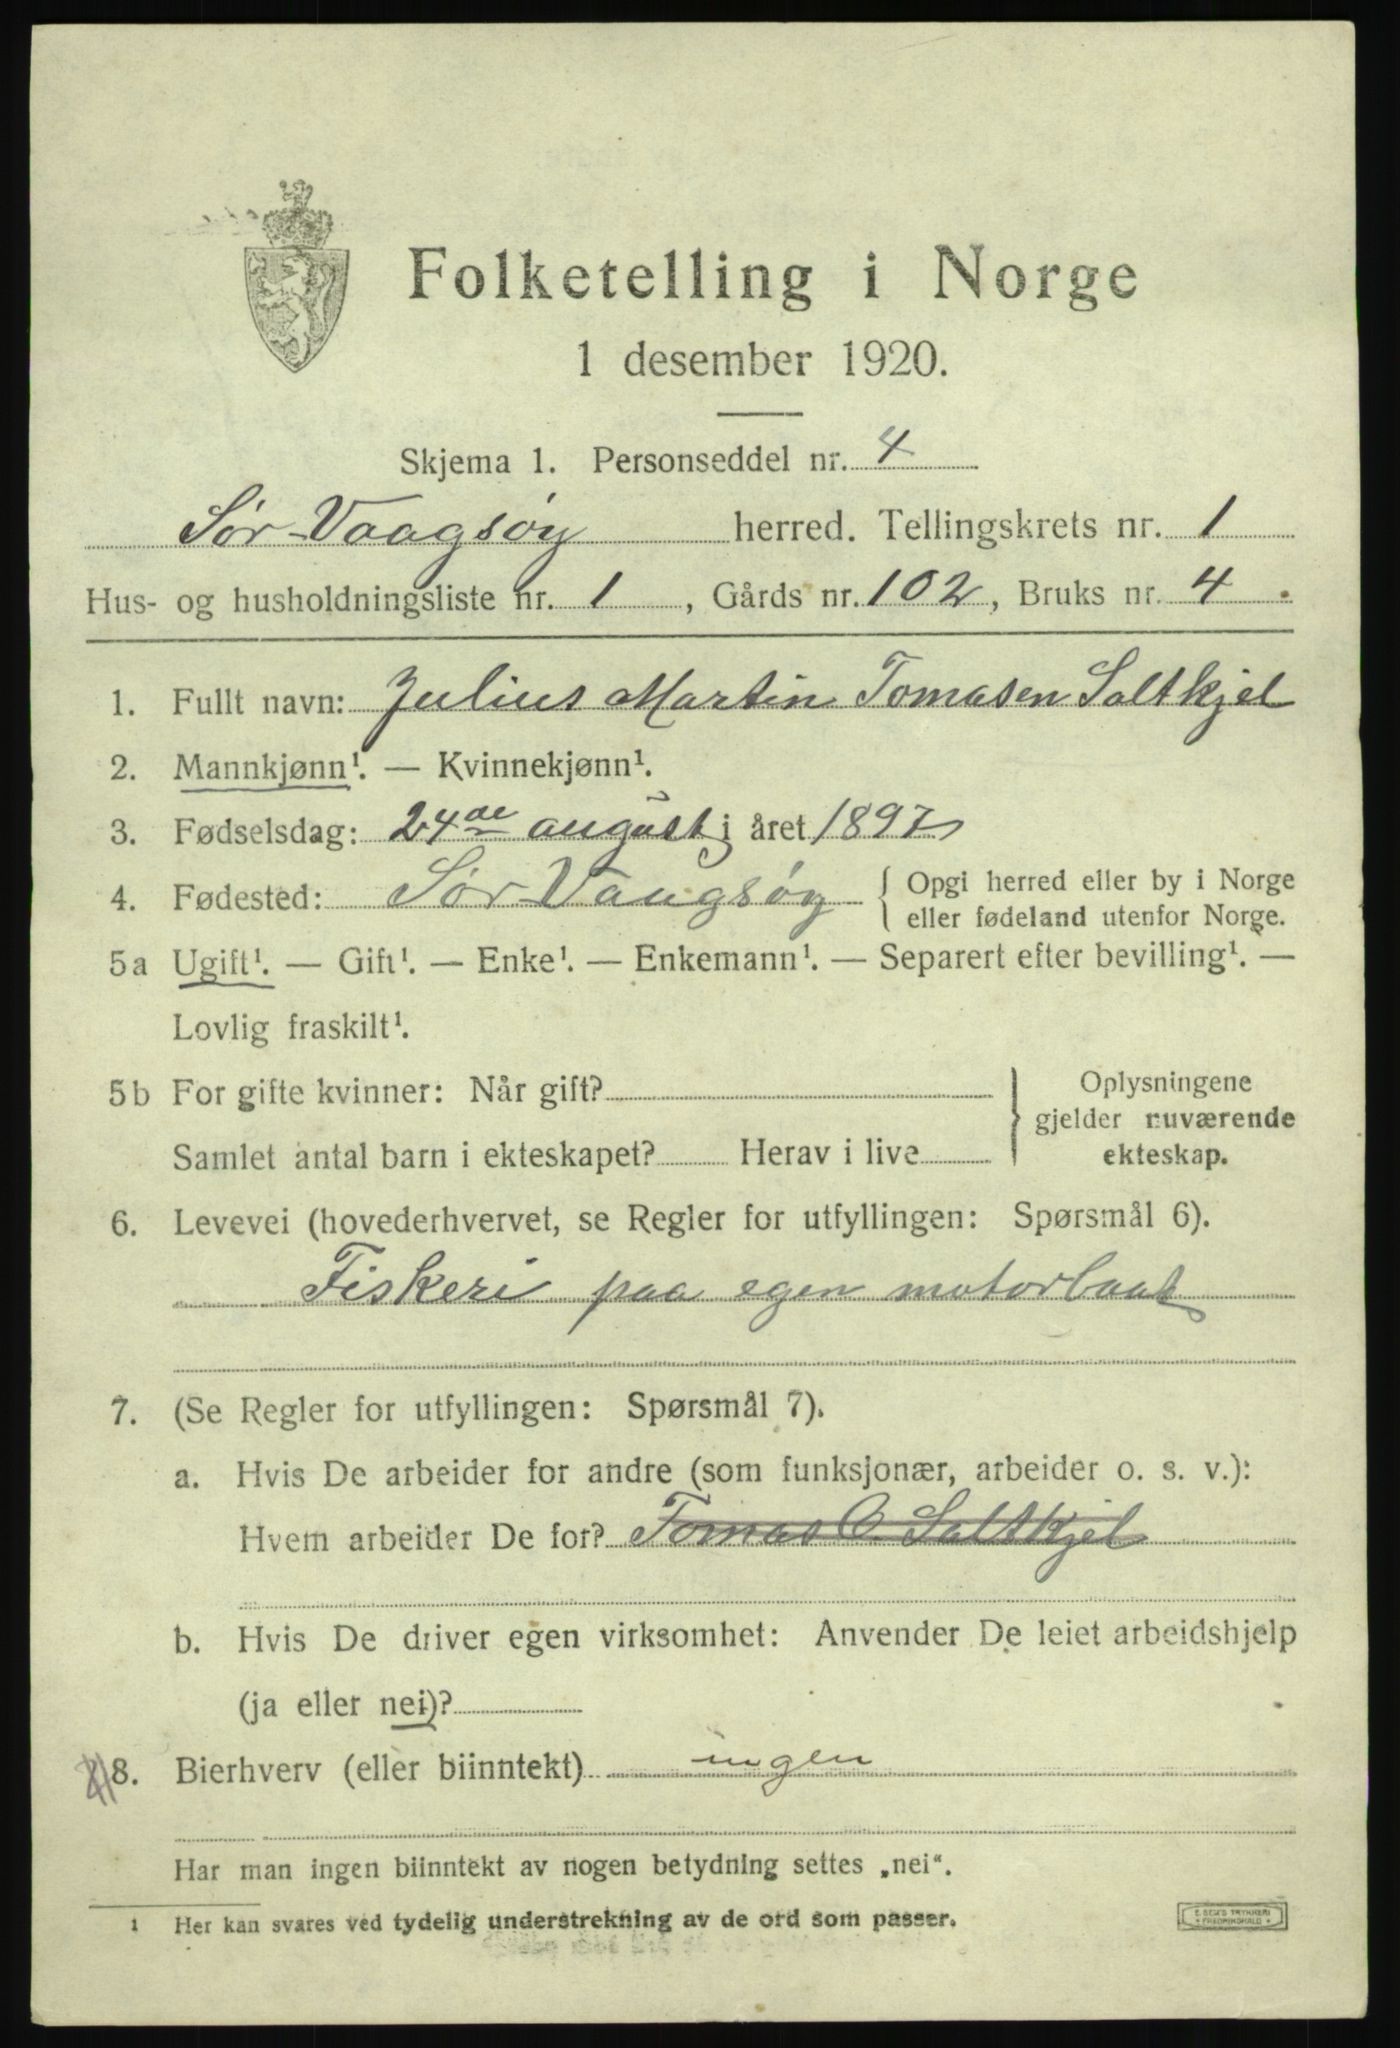 Folketelling i Norge
1 desember 1920.
Skjema 1. Personseddel nr. 4
Sør-Vaagsøy herred. Tellingskrets nr. 1
Hus- og husholdningsliste nr. 1, Gårds nr. 102, Bruks nr. 4.
1. Fullt navn: Julius Martin Tomasen Saltkjel
2. Mannkjønn¹. — Kvinnekjønn¹.
3. Fødselsdag: 24de august i året 1897
4. Fødested: Sør Vaagsøy { Opgi herred eller by i Norge
eller fødeland utenfor Norge.
5a Ugift¹. — Gift¹. — Enke¹. — Enkemann¹. — Separert efter bevilling¹. —
Lovlig fraskilt¹.
5b For gifte kvinner: Når gift?
Samlet antal barn i ekteskapet? Herav i live
} Oplysningene
gjelder nuværende
ekteskap.
6. Levevei (hovederhvervet, se Regler for utfyllingen: Spørsmål 6).
Fiskeri paa egen motorbaat
7. (Se Regler for utfyllingen: Spørsmål 7).
a. Hvis De arbeider for andre (som funksjonær, arbeider o. s. v.):
Hvem arbeider De for? Tomas O. Saltkjel
b. Hvis De driver egen virksomhet: Anvender De leiet arbeidshjelp
(ja eller nei)?
8. Bierhverv (eller biinntekt) ingen
Har man ingen biinntekt av nogen betydning settes „nei“.
¹ Her kan svares ved tydelig understrekning av de ord som passer.
E. SEM'S TRYKKERI
FREDRIKSHALD